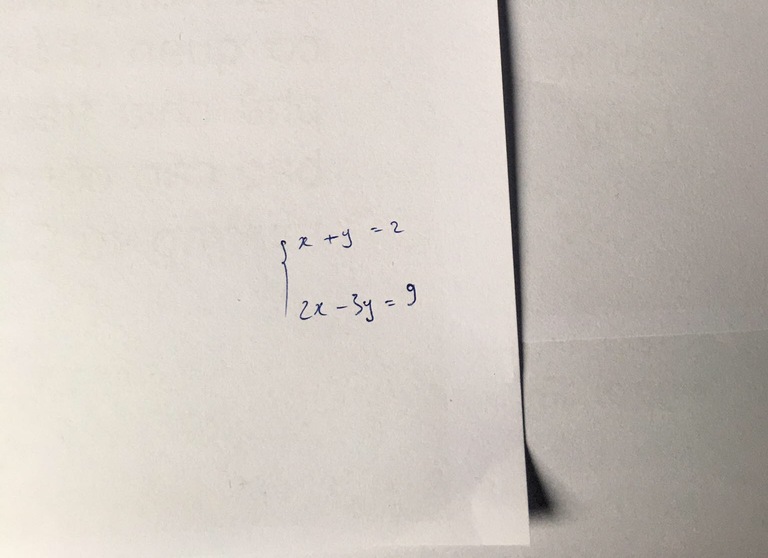 x + y = 2
2x - 3y = 9